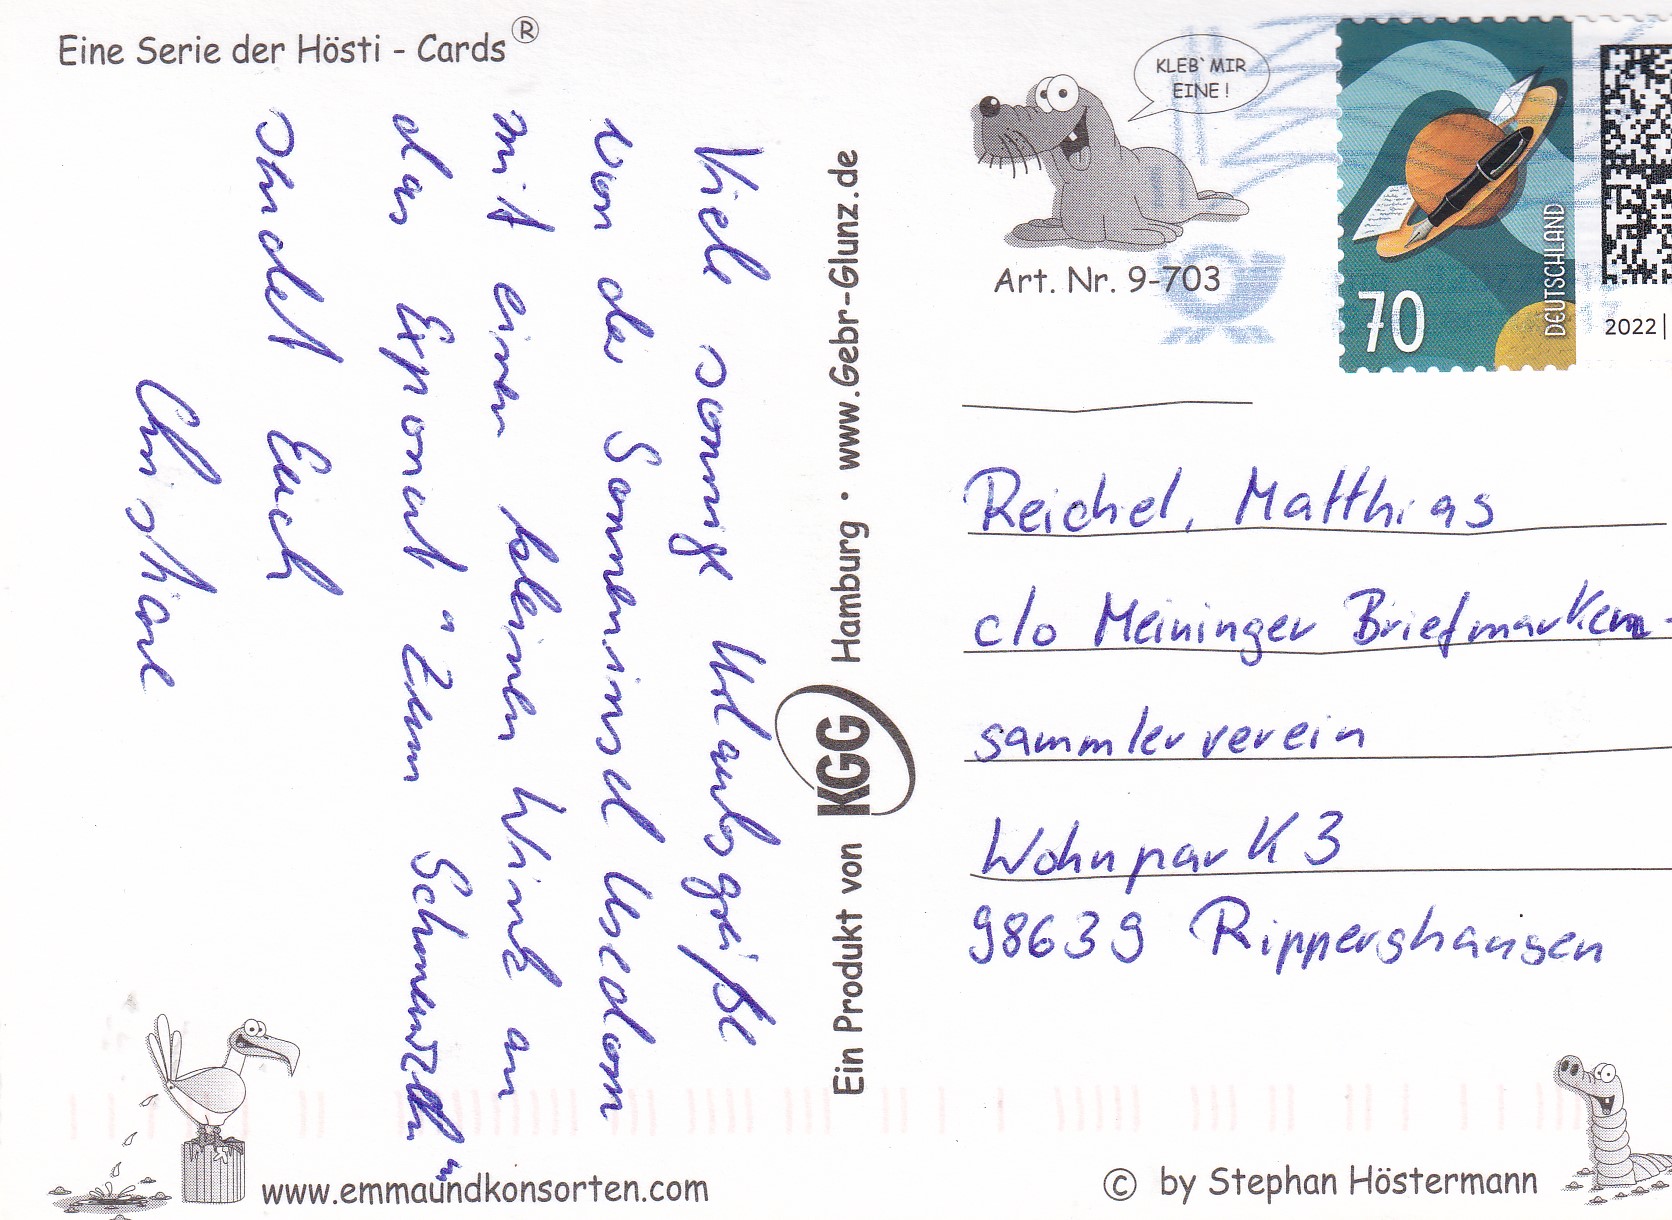 Eine Serie der Hösti - Cards®
Viele sonnige Urlaubsgrüße
von der Sonneninsel Usedom
mit einem kleinen Wink an
das Exponat "Zum Schmunzeln"
sendet Euch
Christiane
www.emmaundkonsorten.com
Ein Produkt von KGG Hamburg · www.Gebr-Glunz.de
KLEB` MIR
EINE !
Art. Nr. 9-703
DEUTSCHLAND
70
2022
Reichel, Matthias
c/o Meininger Briefmarken-
sammlerverein
Wohnpark 3
98639 Rippershausen
© by Stephan Höstermann